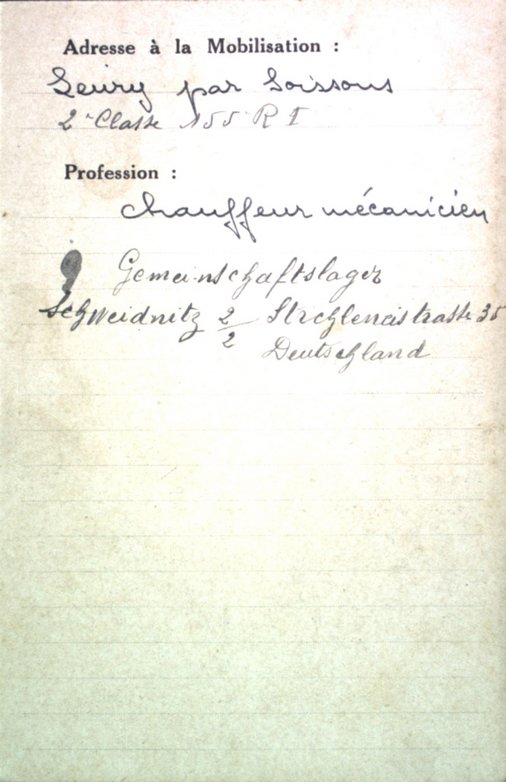 Adresse à la Mobilisation :
Leury par Soissons
2e Classe 155 R I
Profession :
chauffeur mécanicien
Gemeinschaftslager
Schweidnitz 2/2 Strehlenerstrasse 35
Deutschland